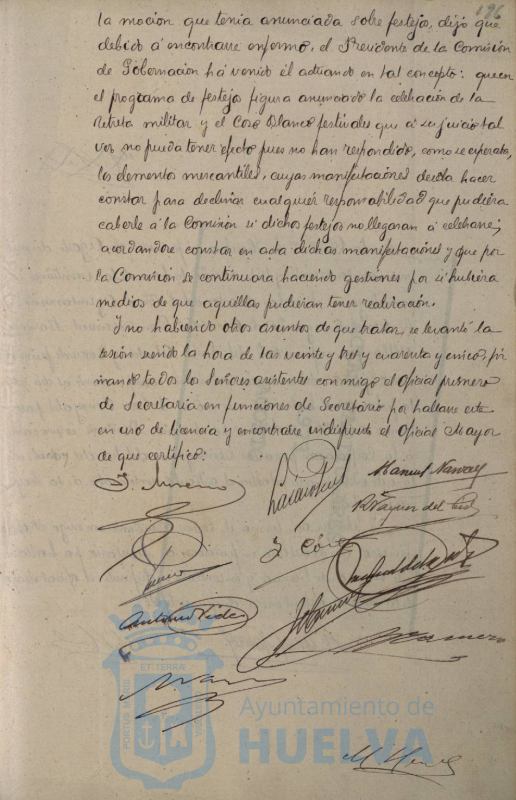 196
la moción que tenia anunciada sobre festejos, dijo que
debido á encontrarse enfermo, el Presidente de la Comisión
de Gobernacion há venido él actuando en tal concepto: que en
el programa de festejos figura anunciado la celebración de la
retreta militar y el Coso Blanco festivales que á su juicio tal
vez no pueda tener efecto pues no han respondido, como se esperaba,
los elementos mercantiles, cuyas manifestaciones desea hacer
constar para declinar cualquier responsabilidad que pudiera
caberle á la Comisión si dichos festejos no llegaran á celebrarse;
acordandose constar en acta dichas manifestaciones y que por
la Comisión se continuara haciendo gestiones por si hubiera
medios de que aquellas pudieran tener realización.
Y no habiendo otros asuntos de que tratar, se levantó la
sesión siendo la hora de las veinte y tres y cuarenta y cinco, fir
mando todos los Señores asistentes conmigo el Oficial primero
de Secretaria en funciones de Secretario por hallarse este
en uso de licencia y encontrarse indispuesto el Oficial Mayor
de que certifico:
J. Moreno
Manuel Navarro
Antonio Vides
PORTUS MARIS
ET TERRAE
Ayuntamiento de
HUELVA